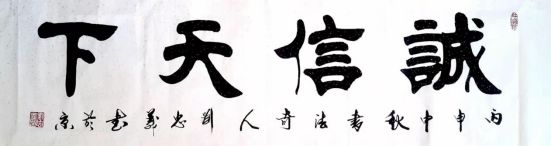 誠信天下
丙申中秋書法奇人劉忠義書於京